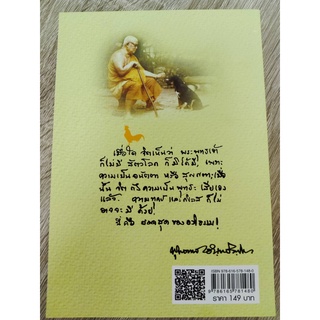 เมื่อใด จิตเห็นว่า พระพุทธเจ้า
ก็ไม่มี สัตว์โลก ก็มิได้มี! เพราะ
ความเป็นอนัตตา หรือ สุญญตา
นั้น จิต ถึงความเป็น พุทธะ เสียเอง
แล้ว. ความทุกข์
จะ มี ด้วย!
นี้ คือ ยอดสุด ของ อภิธรรม!
ISBN 978-616-578-148-0
9 786165 781480
ราคา 149 บาท